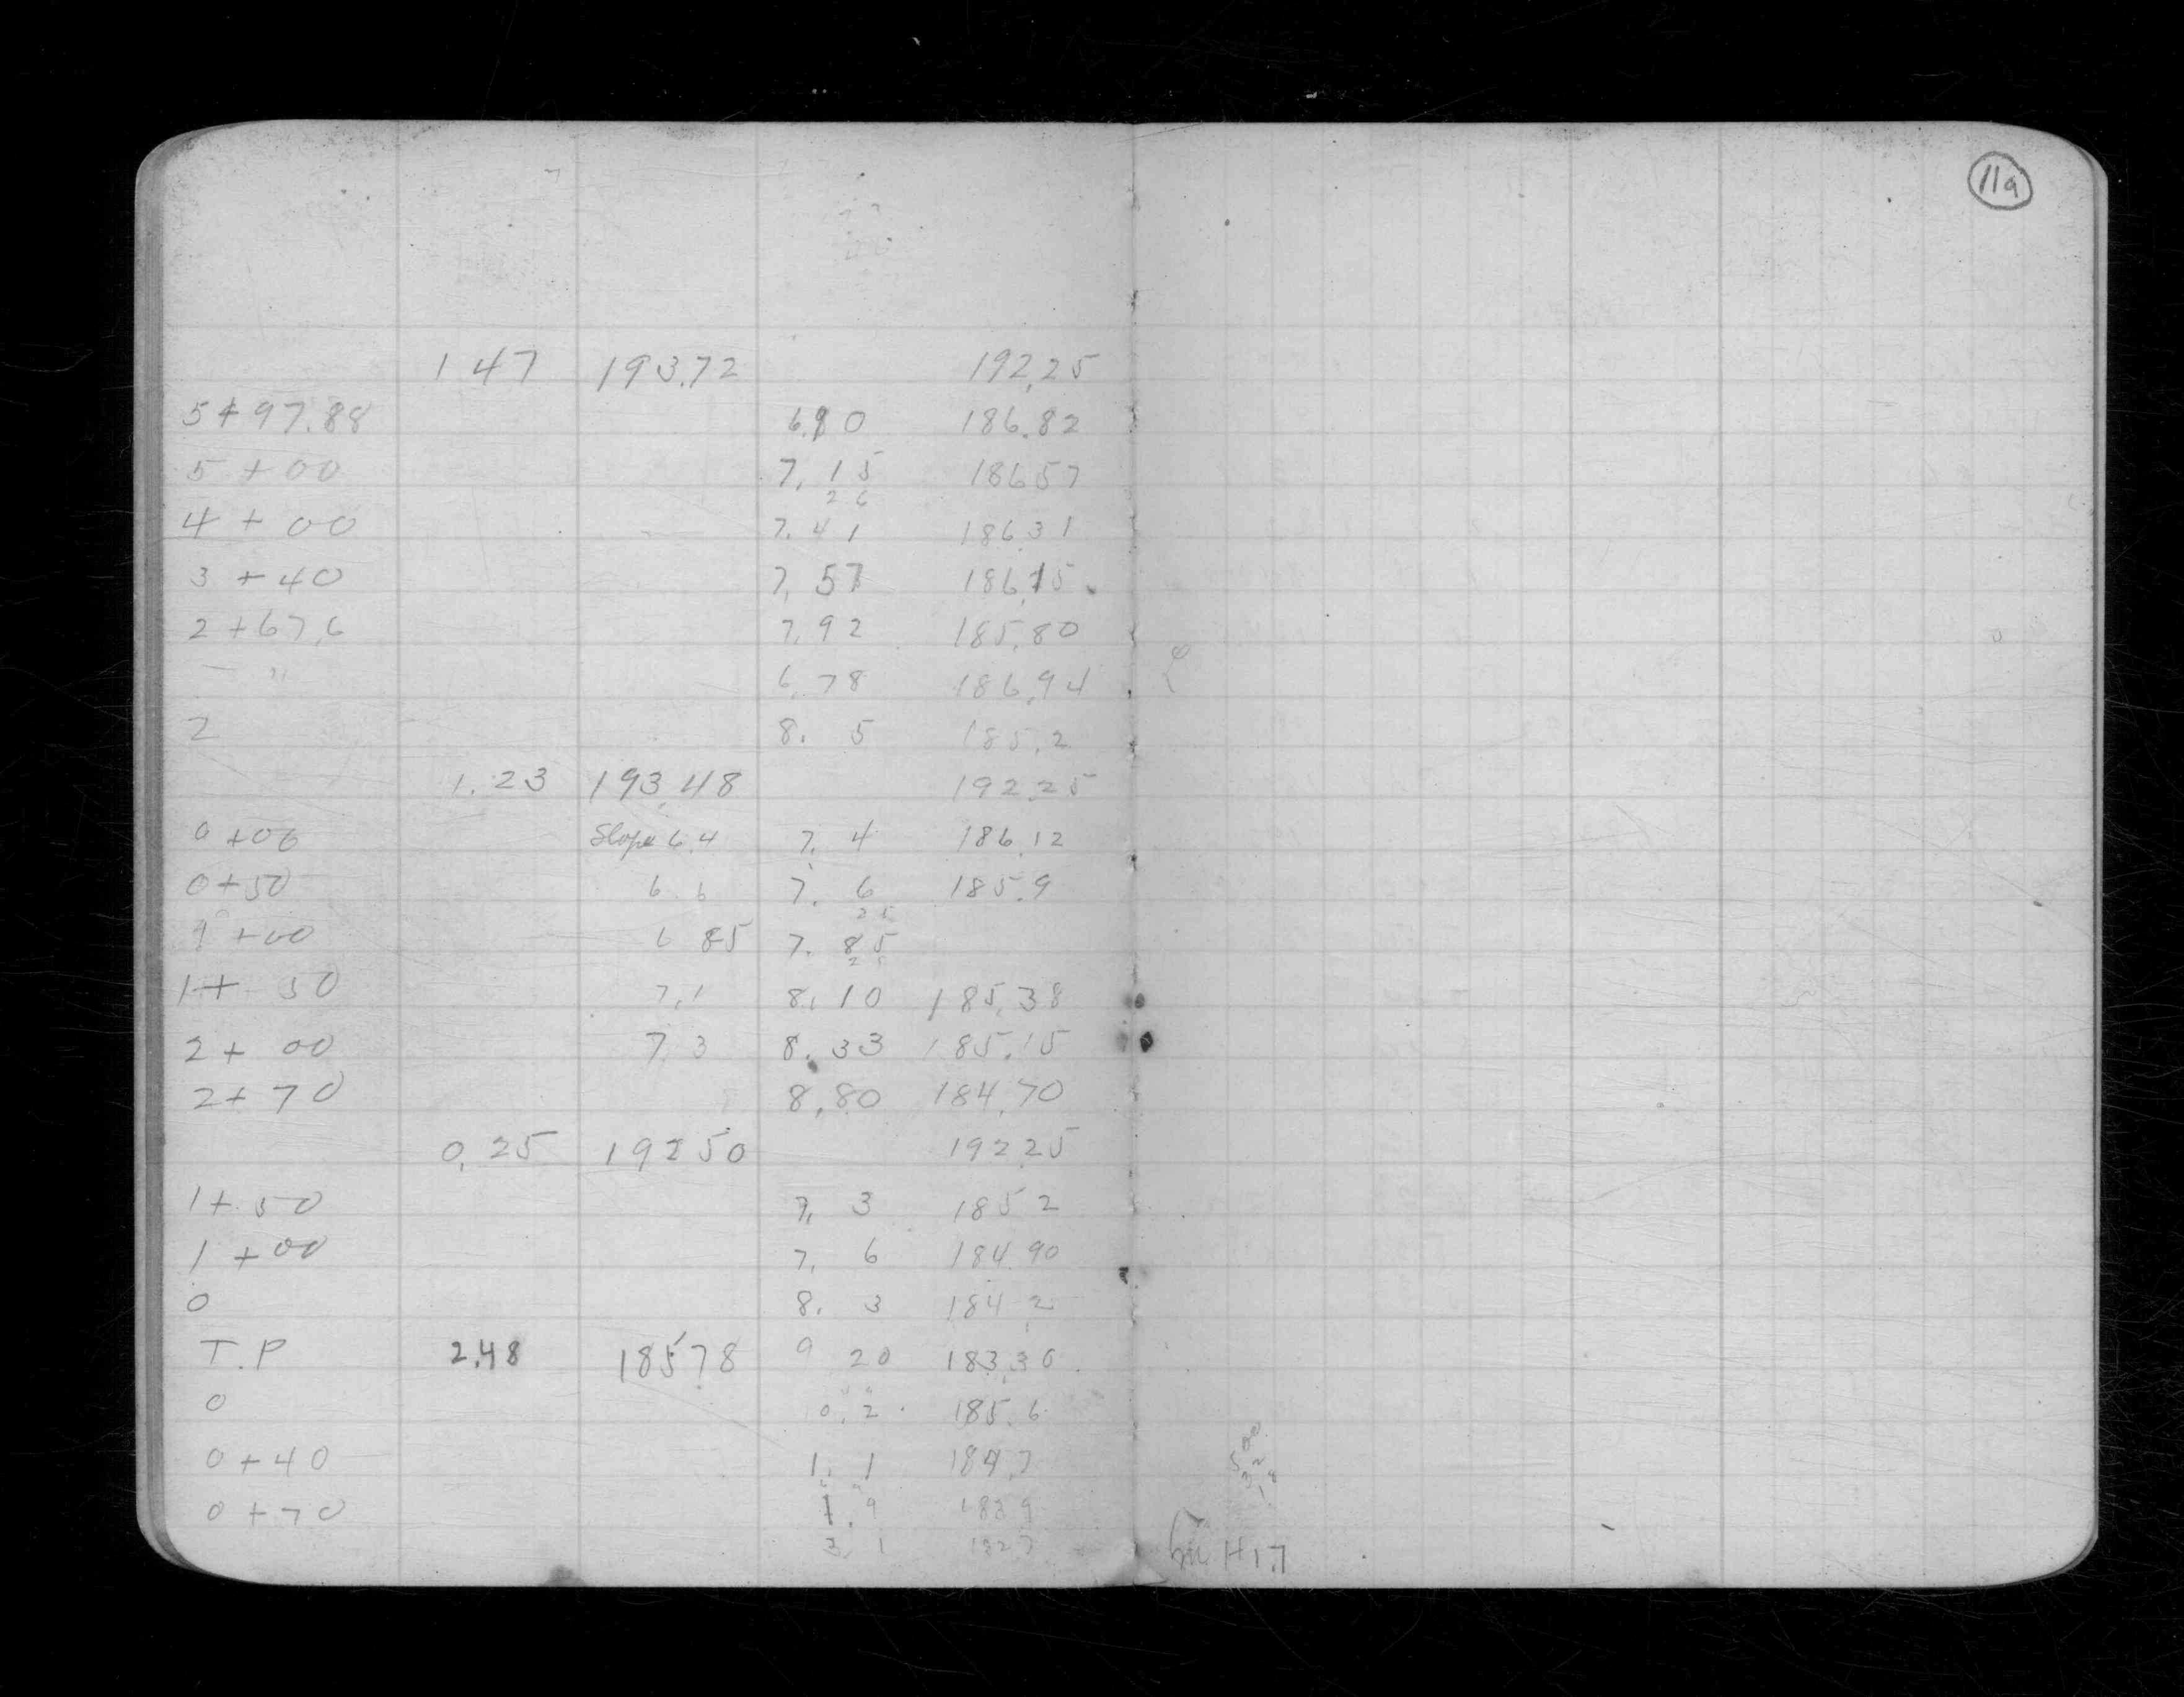 11a
1 47 193.72 192.25
5+97.88 6.90 186.82
5+00 7.15 186 57
2 6
4+00 7.41 186 31
3+40 7,57 186.15
2+67.6 7,92 185.80
— " 6.78 186.94
2 8. 5 185.2
1.23 193.48 192.25
0+00 Slope 6.4 7. 4 186.12
0+50 6.6 7. 6 185.9
2 5
1+00 6 85 7. 85
2 5
1+50 7.1 8.10 185.38
2+00 7.3 8.33 185.15
2+70 8.80 184.70
0.25 192 50 192 25
1+50 7. 3 185 2
1+00 7. 6 184.90
0 8. 3 184 2
T.P 2.48 185 78 9 20 183.30
0 0.2 185.6
0+40 1. 1 184.7
0+70 1.9 183 9
3. 1 182 7